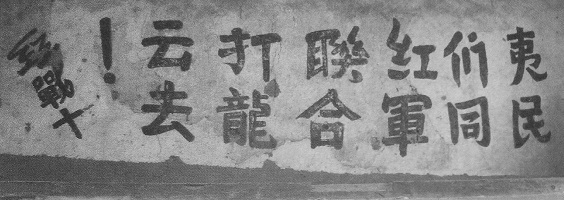 夷民
们同
红軍
聯合
打龍
云去
！
红戰士